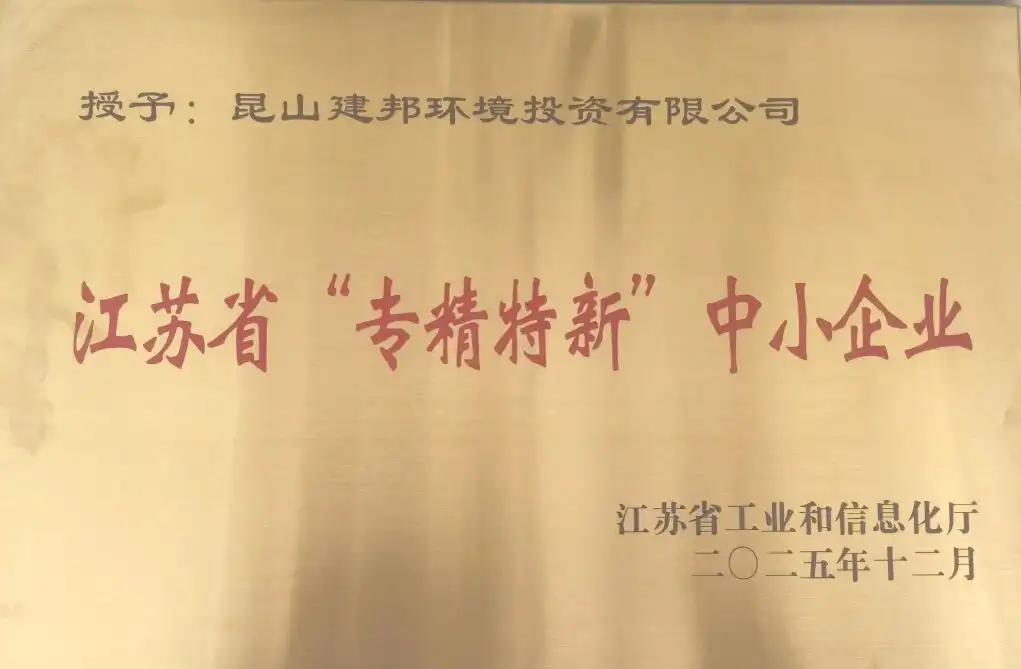 授予：昆山建邦环境投资有限公司
江苏省“专精特新”中小企业
江苏省工业和信息化厅
二〇二五年十二月